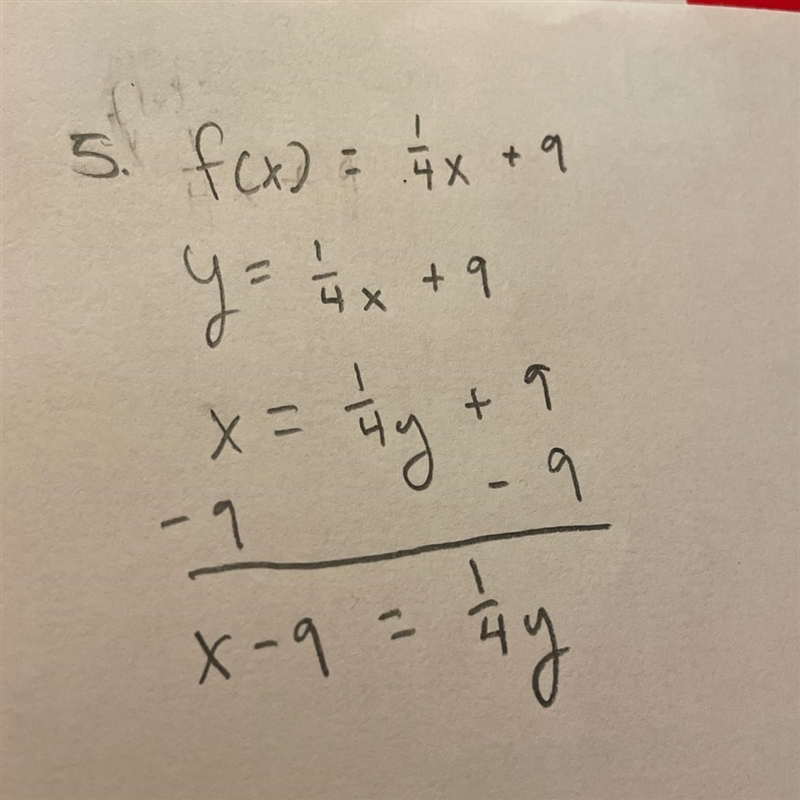 5. f(x) = 1/4x + 9
y = 1/4x + 9
x = 1/4y + 9
-9 - 9
x - 9 = 1/4y